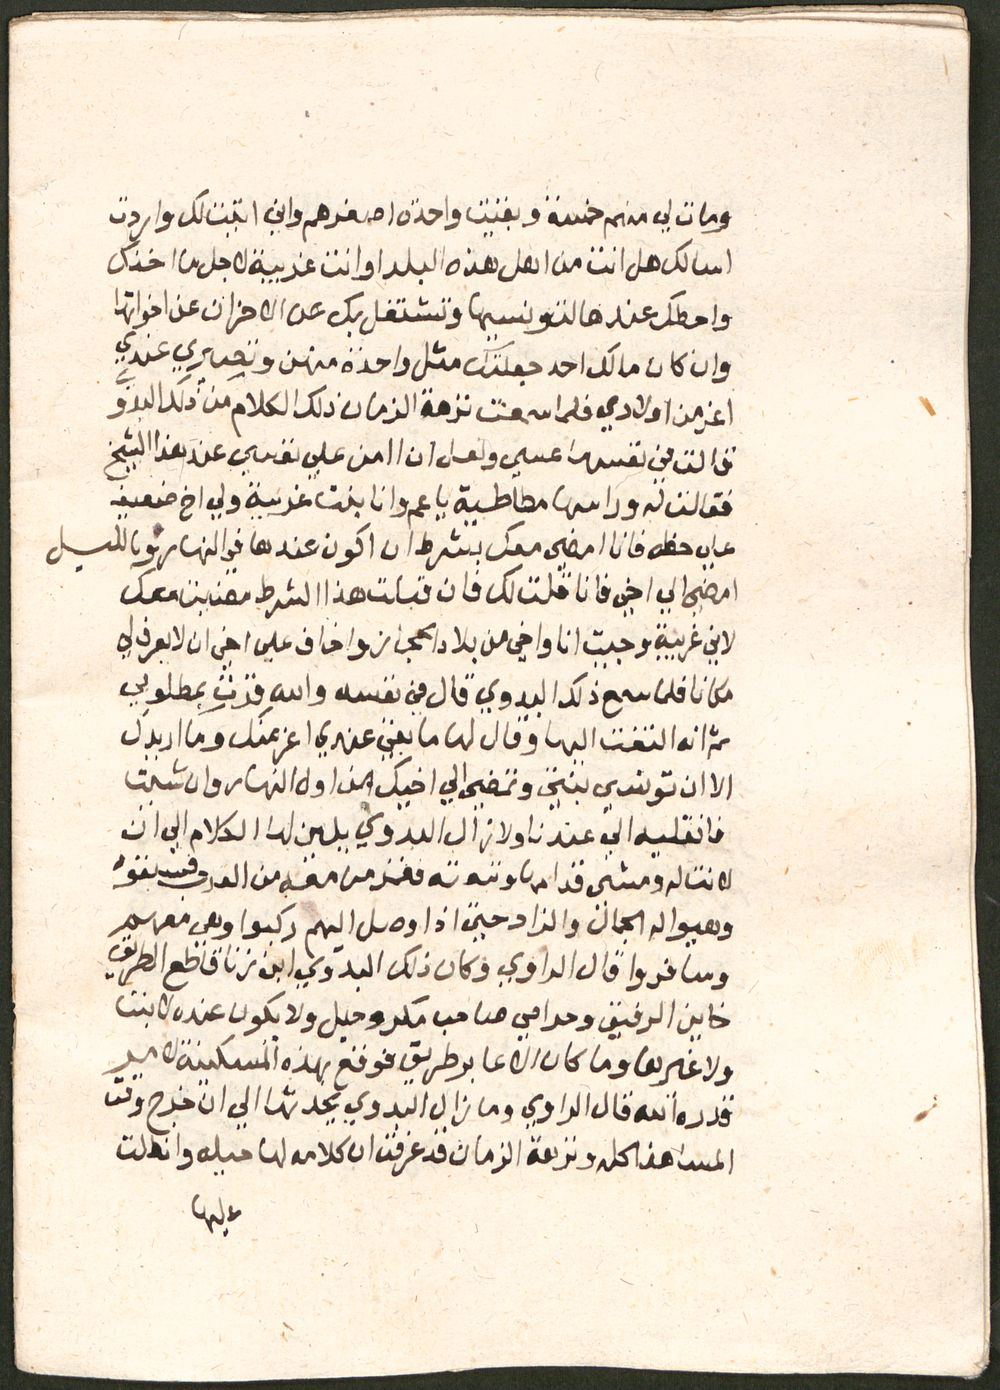 ومات لي منهم خمسة وبقيت واحدة اصغرهم واني اتيت لك واردت
اسالك هل انت من اهل هذه البلد او انت غريبة لاجل ما اخذك
واحطك عندها لتونسيها وتشتغل بك عن الاحزان عن اخواتها
وان كان مالك احد جعلتك مثل واحدة منهن وتصيري عندي
اعز من اولادي فلما سمعت نزهة الزمان ذلك الكلام من ذلك البدوي
قالت في نفسها عسي ولعل ان اامن علي نفسي عند هذا الشيخ
فقالت له وراسها مطاطية يا عم وانا بنت غريبة ولي اخ ضعيف
علي حظه فانا امضي معك بشرط ان اكون عندها في النهار وبالليل
امضي الي اخي فانا قلت لك فان قبلت هذا الشرط مضيت معك
لاني غريبة وجيت انا واخي من بلاد الحجاز واخاف علي اخي ان لا يعرف لي
مكانا فلما سمع ذلك البدوي قال في نفسه والله فزت بمطلوبي
ثم انه التفت اليها وقال لها ما بقي عندي اعز منك وما اريدك
الا ان تونسي بنتي وتمضي الي اخيك من اول النهار وان شيتي
فانقليه الي عندنا ولا زال البدوي يلين لها الكلام الي ان
لانت له ومشي قدامها وتبعته فغمز من معه من العرب فسبقوه
وهيوا له الجمال والزاد حتي اذا وصل اليهم ركبوا وهي معهم
وسافروا قال الراوي وكان ذلك البدوي ابن زنا قاطع الطريق
خاين الرفيق وحرامي صاحب مكر وحيل ولا يكون عنده لا بنت
ولا غيرها وما كان الا عابر طريق فوقع بهذه المسكينة لامر
قدره الله قال الراوي وما زال البدوي يحدثها الي ان خرج وقت
المسا هذا كله ونزهة الزمان قد عرفت ان كلامه لها حيله وانهلت
عليها